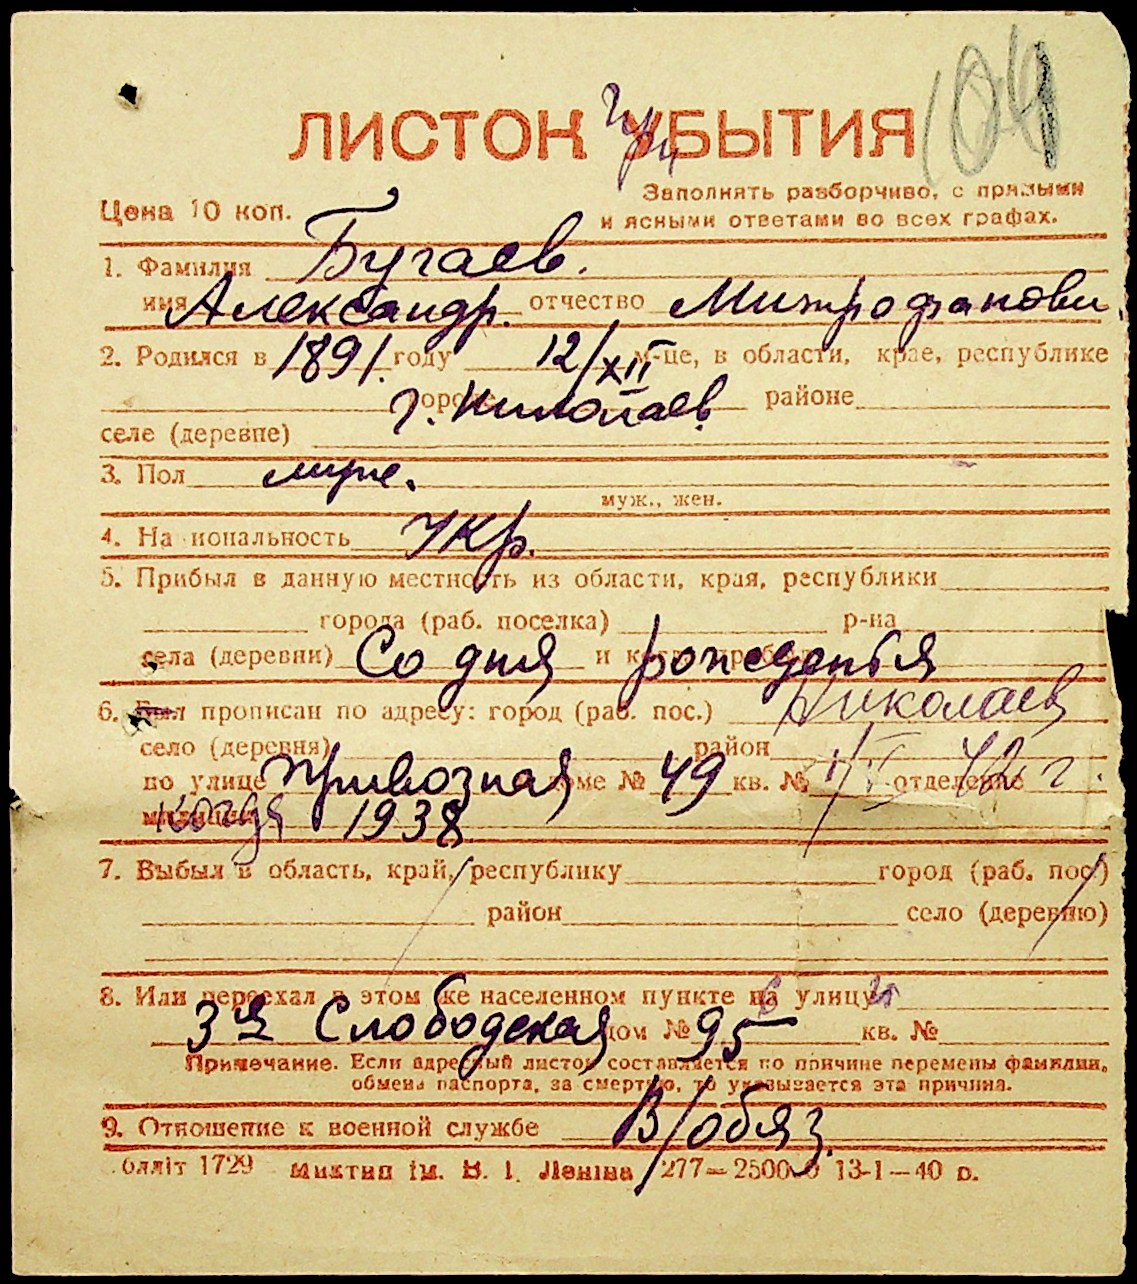 104
ЛИСТОК УБЫТИЯ
Заполнять разборчиво, с прямыми
Цена 10 коп. и ясными ответами во всех графах.
1. Фамилия Бугаев.
имя Александр. отчество Митрофанови
2. Родился в 1891. году 12/XII м-це, в области, крае, республике
городе г. Николаев. районе
селе (деревне)
3. Пол муж.
муж., жен.
4. Национальность Укр.
5. Прибыл в данную местность из области, края, республики
города (раб. поселка) р-на
села (деревни) Со дня и когда прибыл рожденья
6. Был прописан по адресу: город (раб. пос.) Николаев
село (деревня) район
по улице Привозная доме № 49 кв. № 1 отделение
милиции когда 1938
7. Выбыл в область, край, республику город (раб. пос.)
район село (деревню)
8. Или переехал в этом же населенном пункте на улицу
3я Слободская дом № 95 кв. №
Примечание. Если адресный листок составляется по причине перемены фамилии,
обмена паспорта, за смертью, то указывается эта причина.
9. Отношение к военной службе В/обяз.
блліт 1729 Миктип ім. В. І. Леніна 277—2500 13-1—40 р.